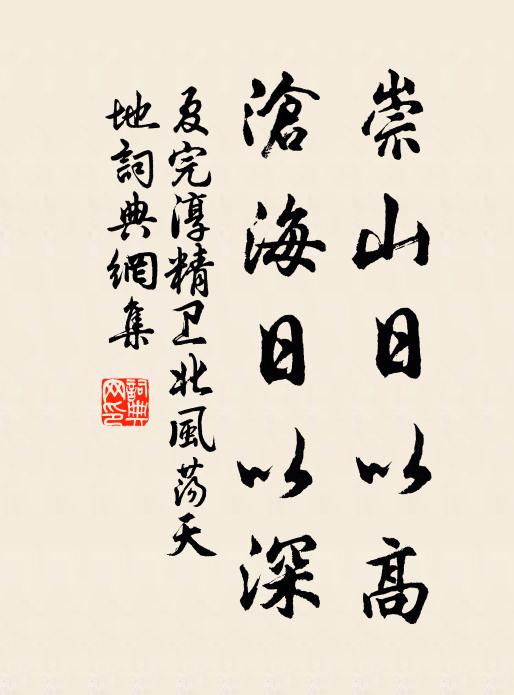 崇山日以高
滄海日以深
夏完淳精卫北風荡天
地詞典網集
詞典
网印